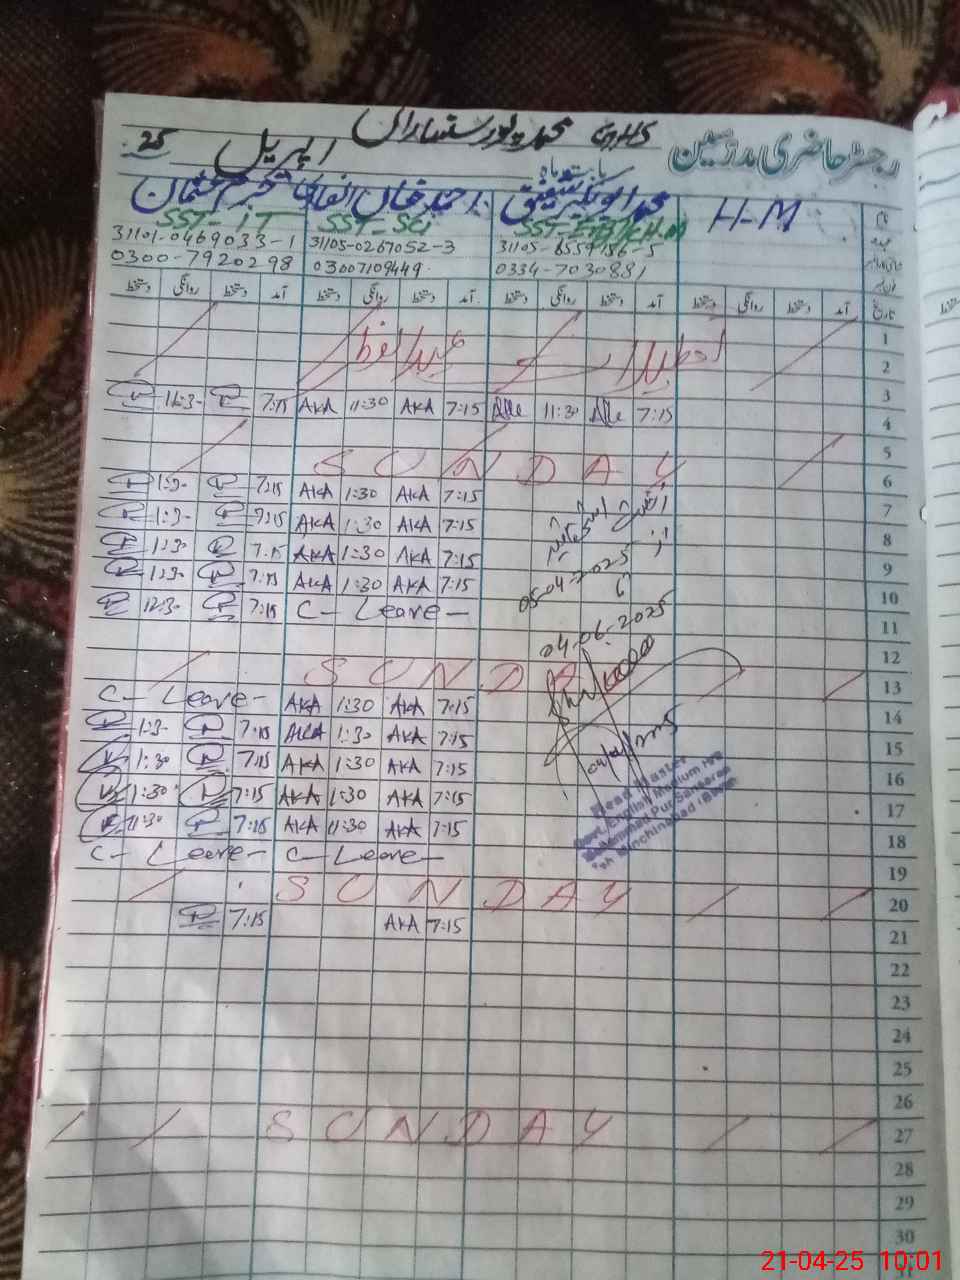 رجسٹر حاضری مدرسین GHS محمد پور سنساراں
بابت ماہ اپریل 25
H-M
محمد ابوبکر صدیق احمد خاں
SST-IT SST-Sci
31101-0469033-1 31105-0267052-3 31105-6559186-5
0300-7920298 03007109449 0334-7030881
آمد دستخط روانگی دستخط آمد دستخط روانگی دستخط آمد دستخط روانگی دستخط آمد دستخط روانگی دستخط
تاریخ
1
تعطیلات عیدالفطر
2
3
11:30 7:15 AKA 11:30 AKA 7:15 11:30 7:15
4
5
SUNDAY
6
1:30 7:15 AKA 1:30 AKA 7:15
7
1:30 7:15 AKA 1:30 AKA 7:15
8
1:30 7:15 AKA 1:30 AKA 7:15
05-04-2025
9
1:30 7:15 AKA 1:30 AKA 7:15
10
12:30 7:15 C- Leave-
11
04-06-2025
12
SUNDA
13
C- Leave- AKA 1:30 AKA 7:15
14
1:30 7:15 AKA 1:30 AKA 7:15
15
1:30 7:15 AKA 1:30 AKA 7:15
16
1:30 7:15 AKA 1:30 AKA 7:15
17
11:30 7:15 AKA 11:30 AKA 7:15
18
Head Master
Govt. English Medium
C- Leave- C- Leave-
19
SUNDAY
20
7:15 AKA 7:15
21
22
23
24
25
26
SUNDAY
27
28
29
30
21-04-25 10:01